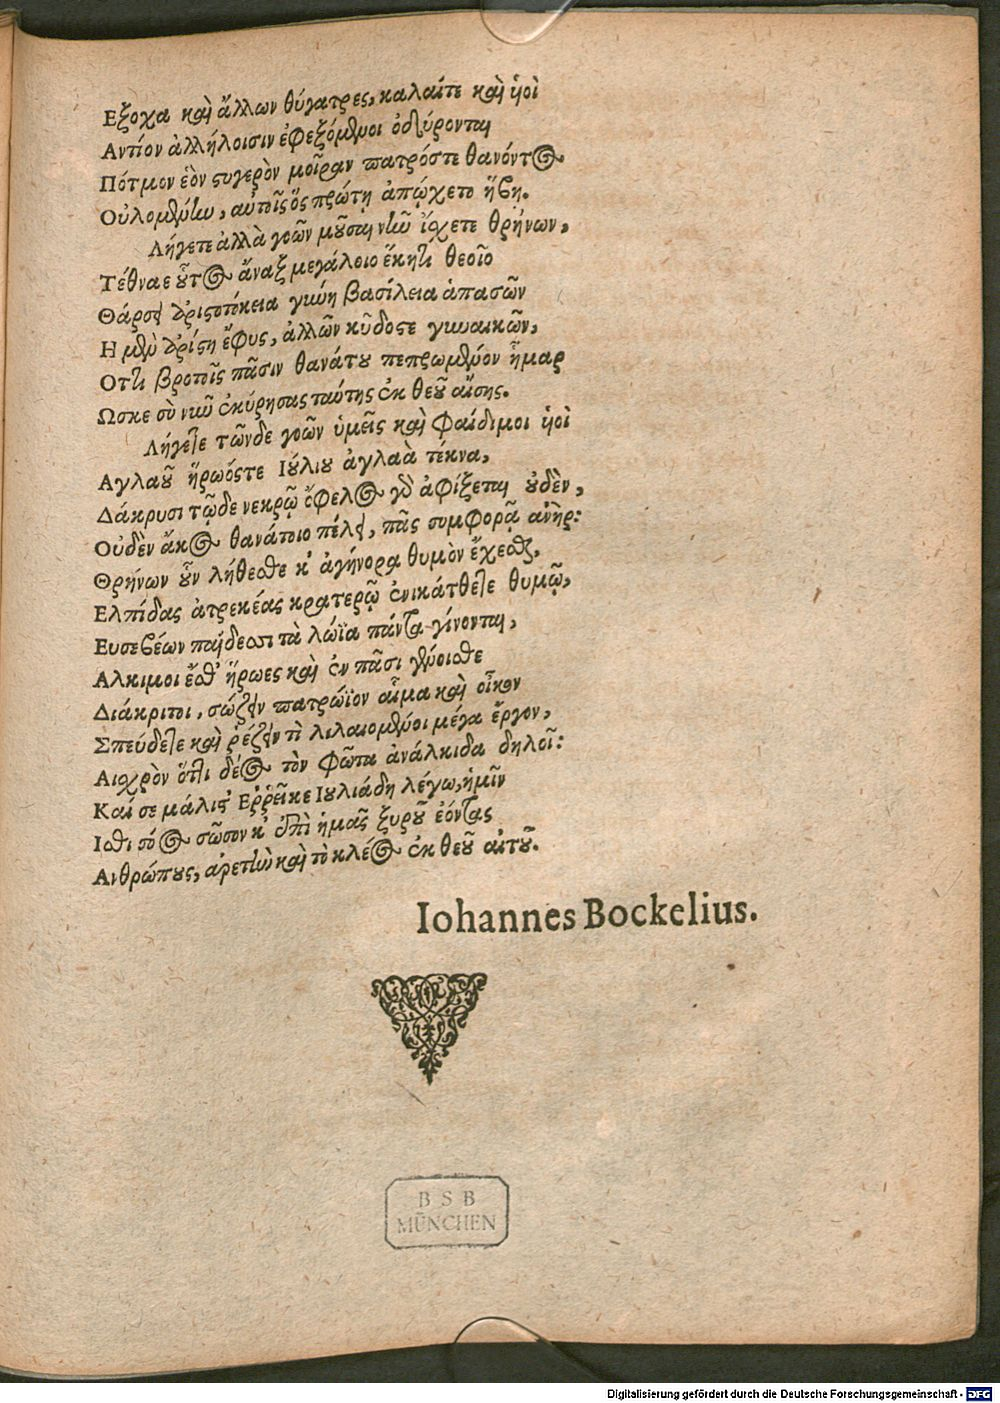 Εξοχα καὶ ἄλλων θύγατρες, καλαίτε καὶ ἡοὶ
Αντίον ἀλλήλοισιν ἐφεζόμδμοι ὀδύρονται
Πότμον ἑὸν στυγερὸν μοῖραν πατρόστε θανόντος
Οὐλομένην, αὐτοῖς ὃς πρώτη ἀπῴχετο ἥβη.
Λήγετε ἀλλὰ γοῶν μοῦσαι νῦν ἴσχετε θρήνων,
Τέθναε οὗτος ἄναξ μεγάλοιο ἕκητι θεοῖο
Θάρσει ἀριστοτόκεια γυνή βασίλεια ἁπασῶν
Η μὲν ἀρίστη ἔφυς, ἀλλῶν κῦδοστε γυναικῶν,
Οτι βροτοῖς πᾶσιν θανάτου πεπρωμένον ἦμαρ
Ωσκε σὺ νῦν ἐκύρησας ταύτης ἐκ θεοῦ αἴσης.
Λήγετε τῶνδε γοῶν ὑμεῖς καὶ Φαίδιμοι ἡοὶ
Αγλαοῦ ἥρωόστε Ιούλιου ἀγλαὰ τέκνα,
Δάκρυσι τῷδε νεκρῷ ὄφελος γὸ ἀφίξεται οὐδὲν,
Οὐδὲν ἄκος θανάτοιο πέλει, πᾶς συμφορᾷ ἀνὴρ:
Θρήνων οὖν λήθεσθε κ' ἀγήνορα θυμὸν ἔχεσθε,
Ελπίδας ἀτρεκέας κρατερῷ ἐνικάτθετε θυμῷ,
Ευσεβέων παίδεσσι τὰ λώϊα πάντα γίνονται,
Αλκιμοι ἔσθ' ἥρωες καὶ ἐν πᾶσι γένοισθε
Διάκριτοι, σώζειν πατρώϊον αἷμα καὶ οἶκον
Σπεύδετε καὶ ῥέζειν τὶ λιλαιομένοι μέγα ἔργον,
Αισχρὸν ὅτι δέος τὸν φῶτα ἀνάλκιδα δηλοῖ:
Καί σε μάλιστ' Ερῥεῖκε Ιουλιάδη λέγω, ἡμῖν
Ισθι σόος σῶσον κ' ἐπὶ ἡμᾶς ξυροῦ ἐόντας
Ανθρώπους, ἀρετὴν καὶ τὸ κλέος ἐκ θεοῦ αἰτοῦ.
Iohannes Bockelius.
BSB
MÜNCHEN
Digitalisierung gefördert durch die Deutsche Forschungsgemeinschaft - DFG